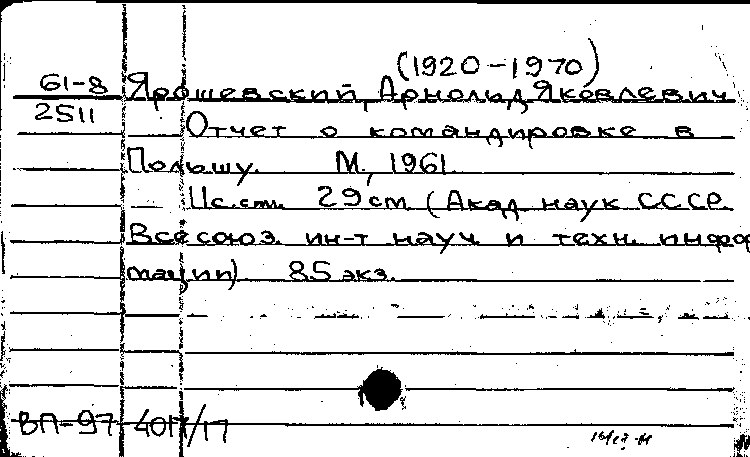 (1920-1970)
61-8 Ярошевский, Арнольд Яковлевич
2511 Отчет о командировке в
Польшу. М., 1961.
11с.ст. 29см. (Акад. наук СССР.
Всесоюз. ин-т науч. и техн. инфор
мации). 85 экз.
ВП-97-4017/17